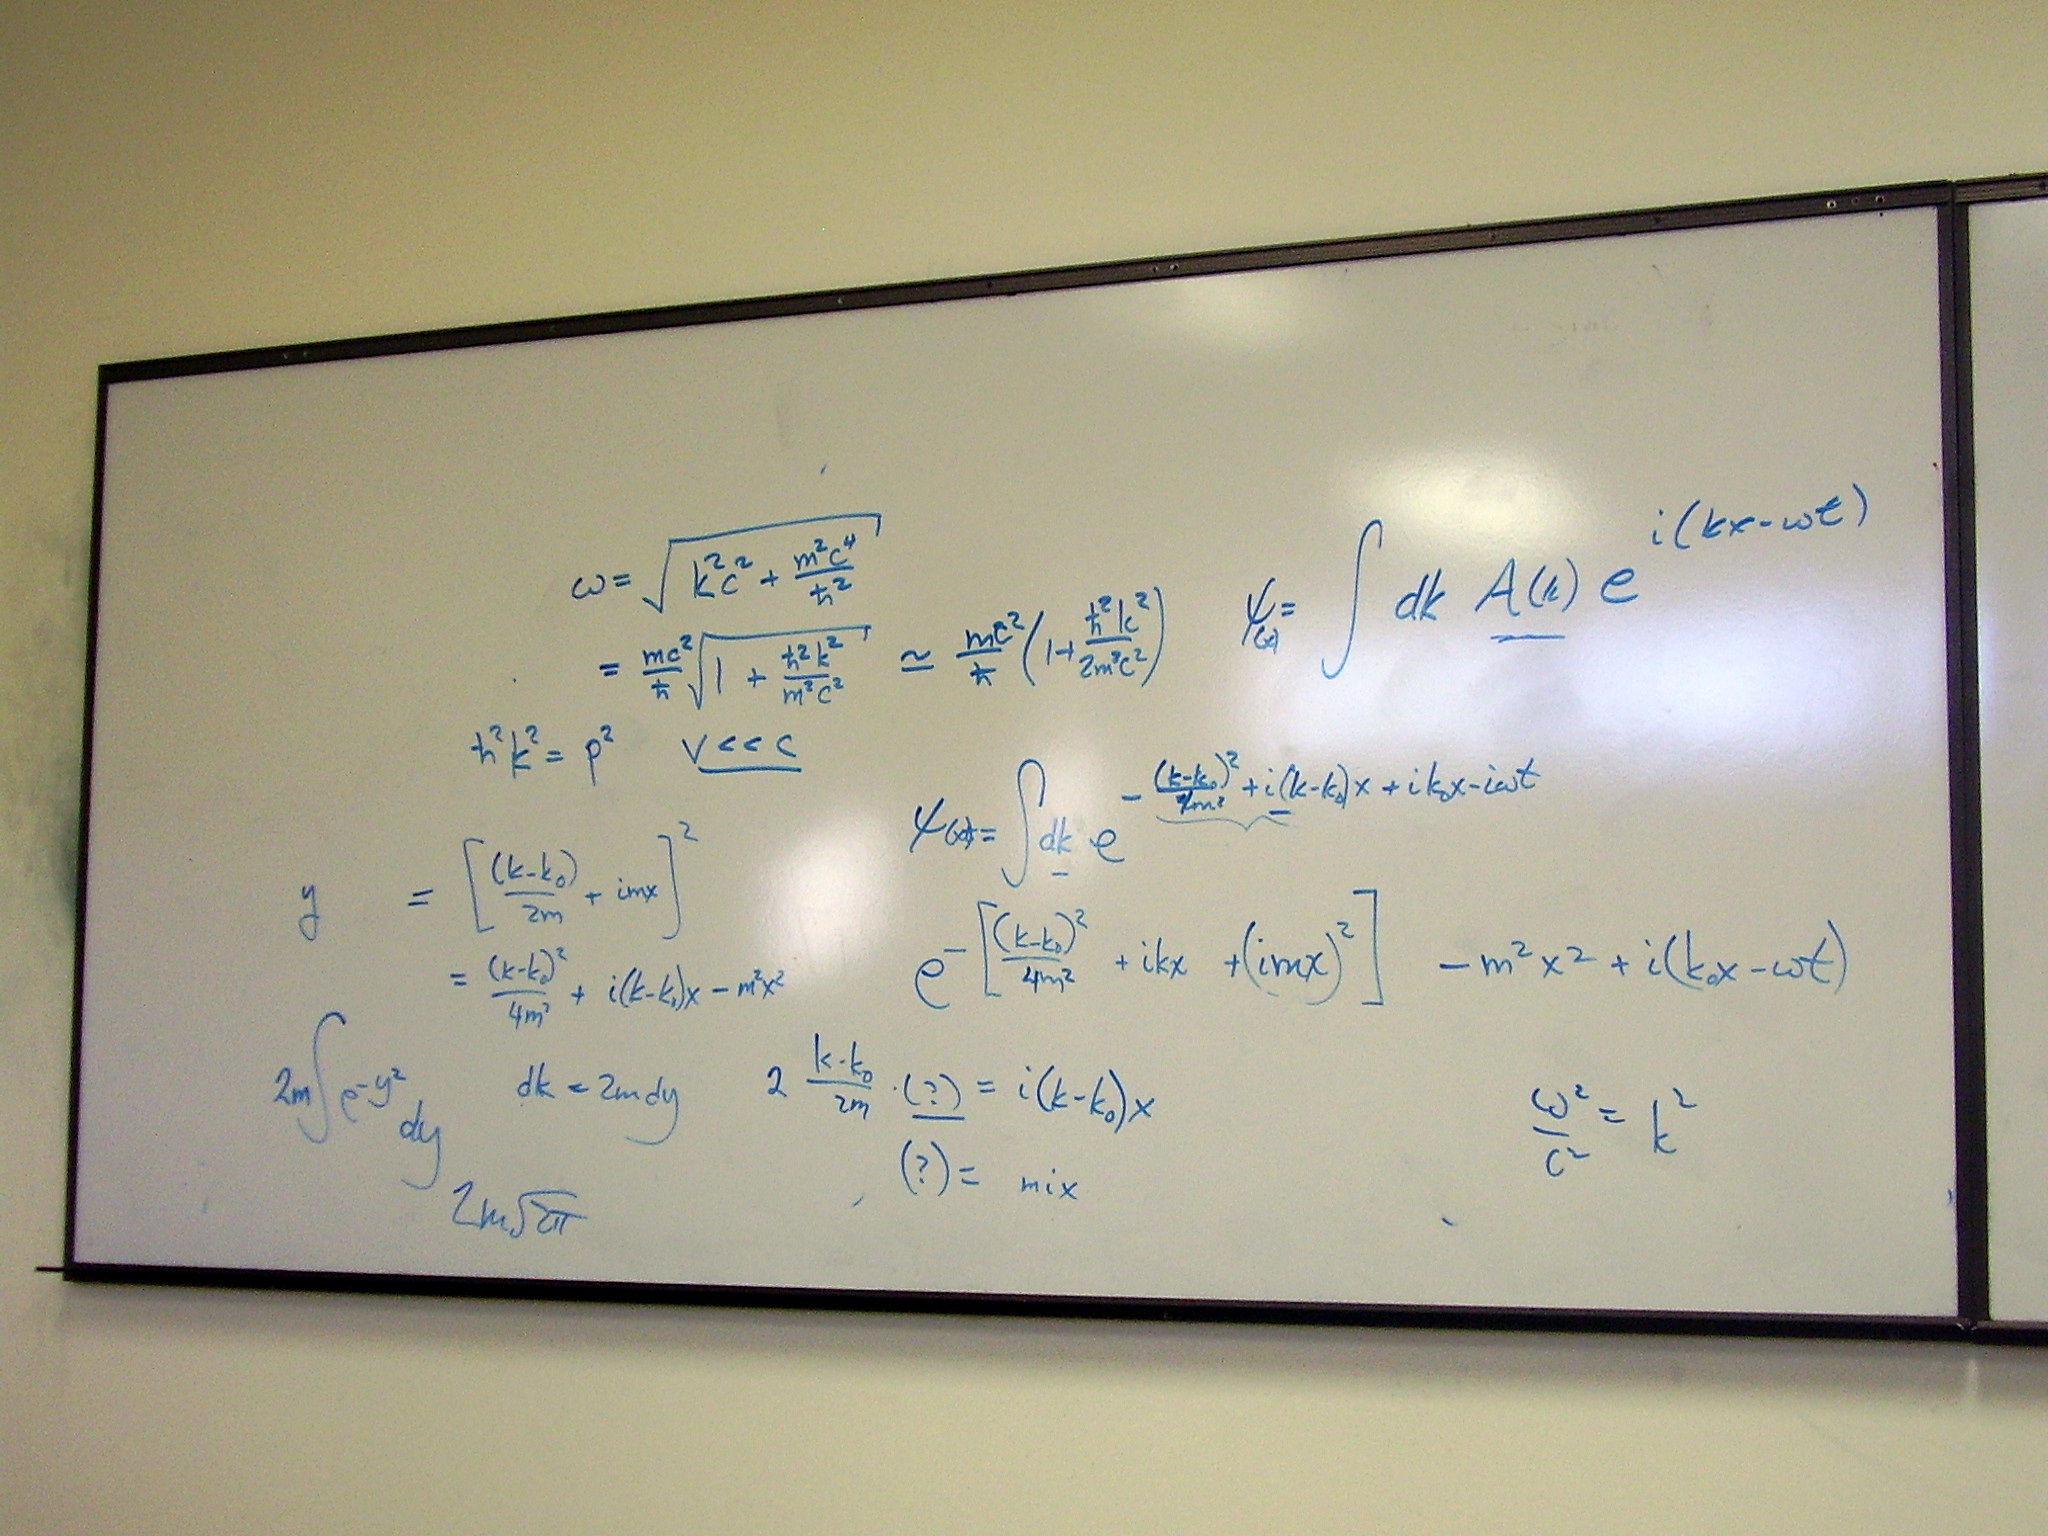 ω = √(k²c² + m²c⁴/ħ²)
= mc²/ħ √(1 + ħ²k²/m²c²) ≃ mc²/ħ (1 + ħ²k²/2m²c²)
ħ²k² = p² v << c
ψ(x) = ∫ dk A(k) e^{i(kx-ωt)}
ψ(x) = ∫ dk e^{-(k-k₀)²/4m² + i(k-k₀)x + ik₀x - iωt}
y = [(k-k₀)/2m + imx]²
= (k-k₀)²/4m² + i(k-k₀)x - m²x²
e^-[(k-k₀)²/4m² + ikx + (imx)²] - m²x² + i(k₀x - ωt)
2m∫e^{-y²} dy dk = 2m dy
2 (k-k₀)/2m · (?) = i(k-k₀)x
(?) = mix
2m√2π
ω²/c² = k²